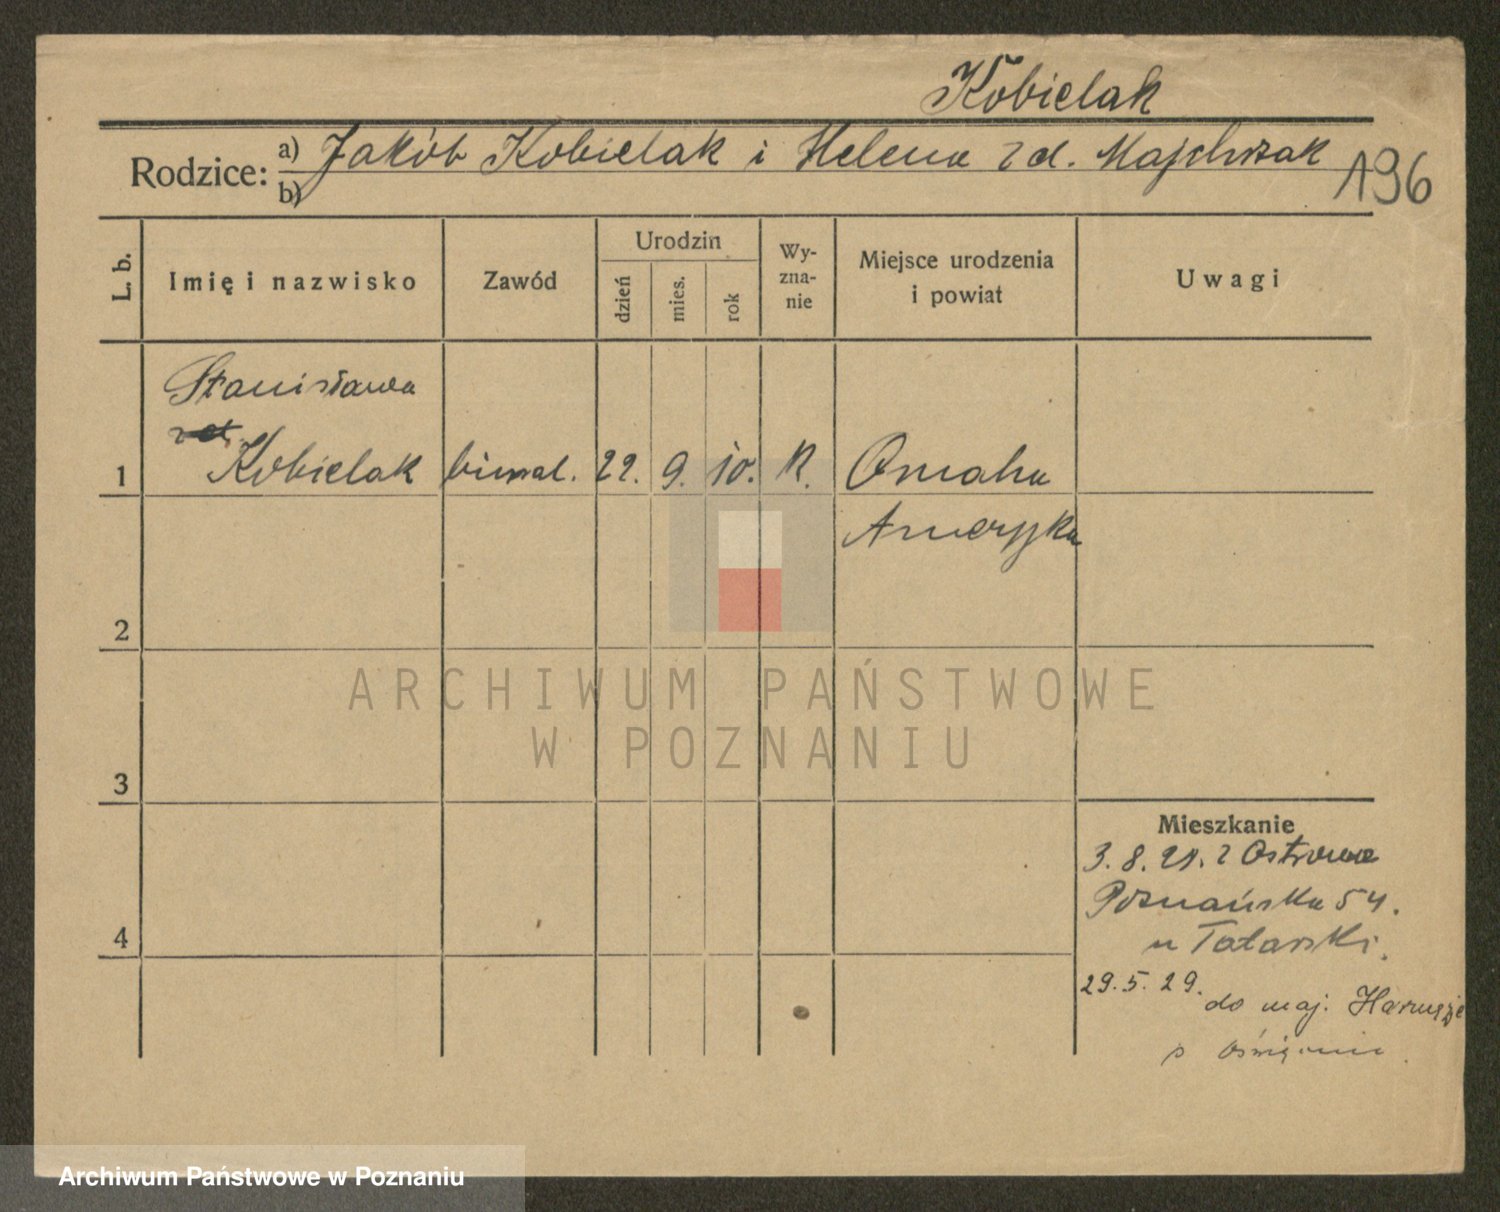 Kobielak
Rodzice: a) Jakób Kobielak i Helena zd. Majchrzak
b)
196
L. b.
Imię i nazwisko
Zawód
Urodzin
dzień
mies.
rok
Wy-
zna-
nie
Miejsce urodzenia
i powiat
Uwagi
Stanisława
zd.
1 Kobielak biural. 22. 9. 10. R. Omaha
Ameryka
2
3
4
Mieszkanie
3. 8. 28. z Ostrowa
Poznańska 54.
u Tatarski.
29. 5. 29.
do maj.
p
ARCHIWUM PAŃSTWOWE
W POZNANIU
Archiwum Państwowe w Poznaniu